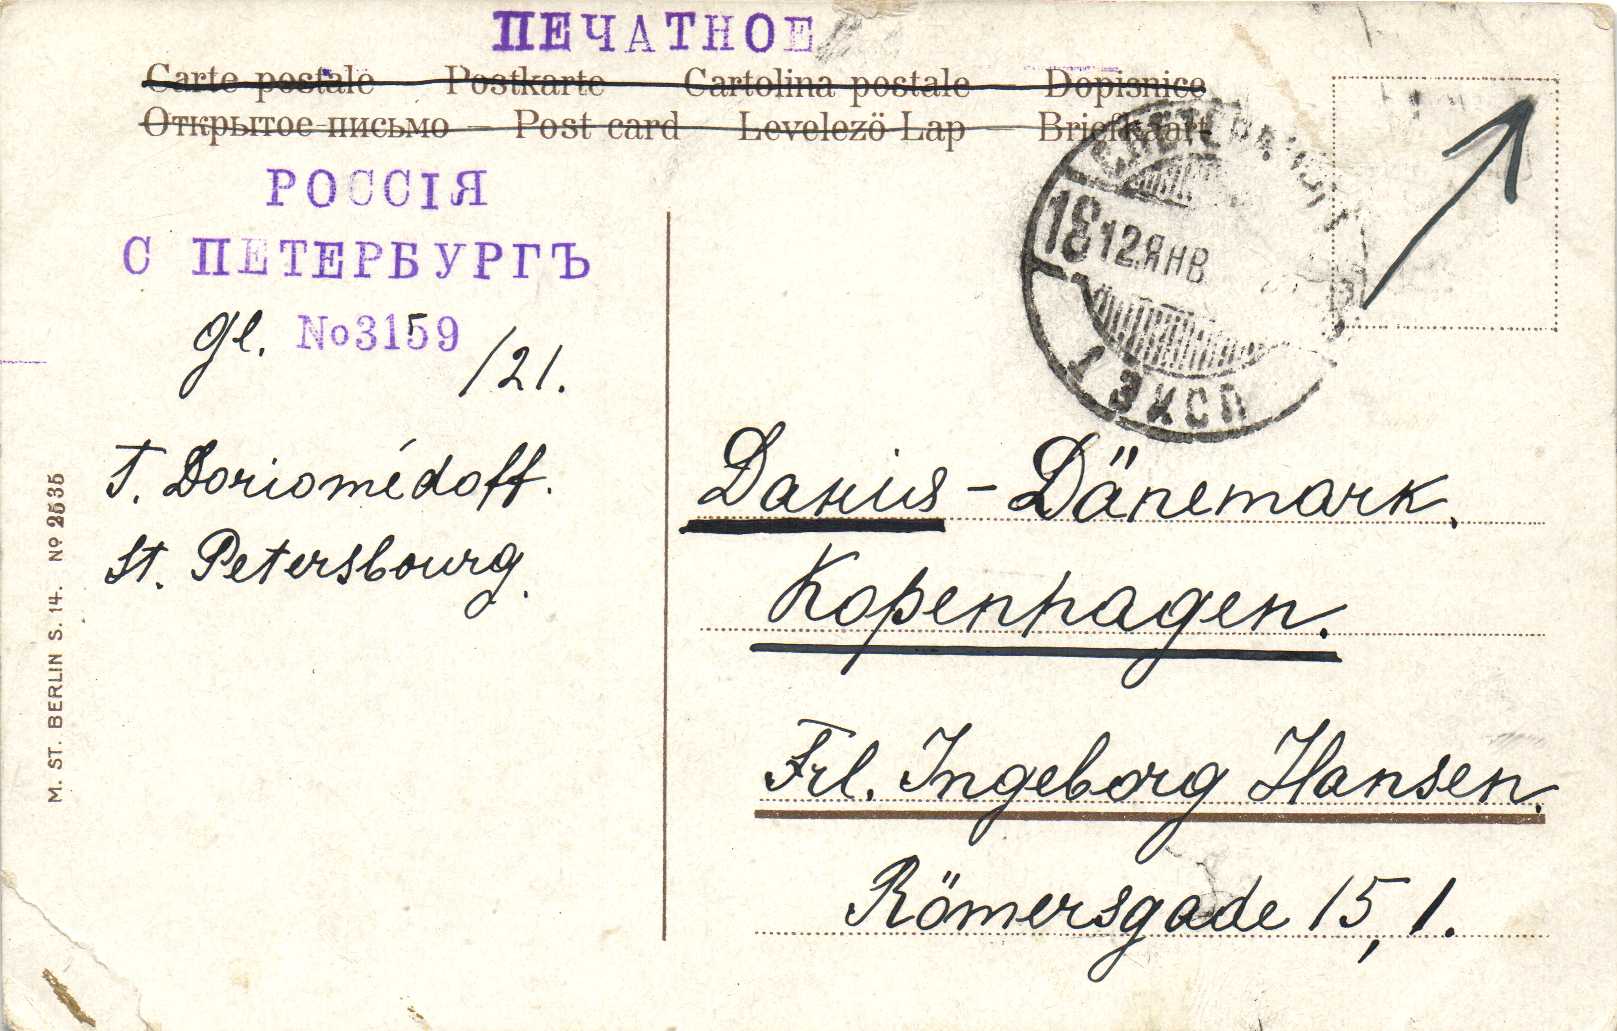 ПЕЧАТНОЕ
Carte postale Postkarte Cartolina postale Dopisnice
Открытое письмо — Post card Levelező Lap — Briefkaart
РОССІЯ
С ПЕТЕРБУРГЪ
gl. No3159 /21.
T. Doriomédoff.
St. Petersbourg.
M. ST. BERLIN S. 14. No 2535
С.ПЕТЕРБУРГЪ
18 12 ЯНВ
ЭКСП
Данія - Dänemark.
Kopenhagen.
Frl. Ingeborg Hansen.
Römersgade 15, 1.